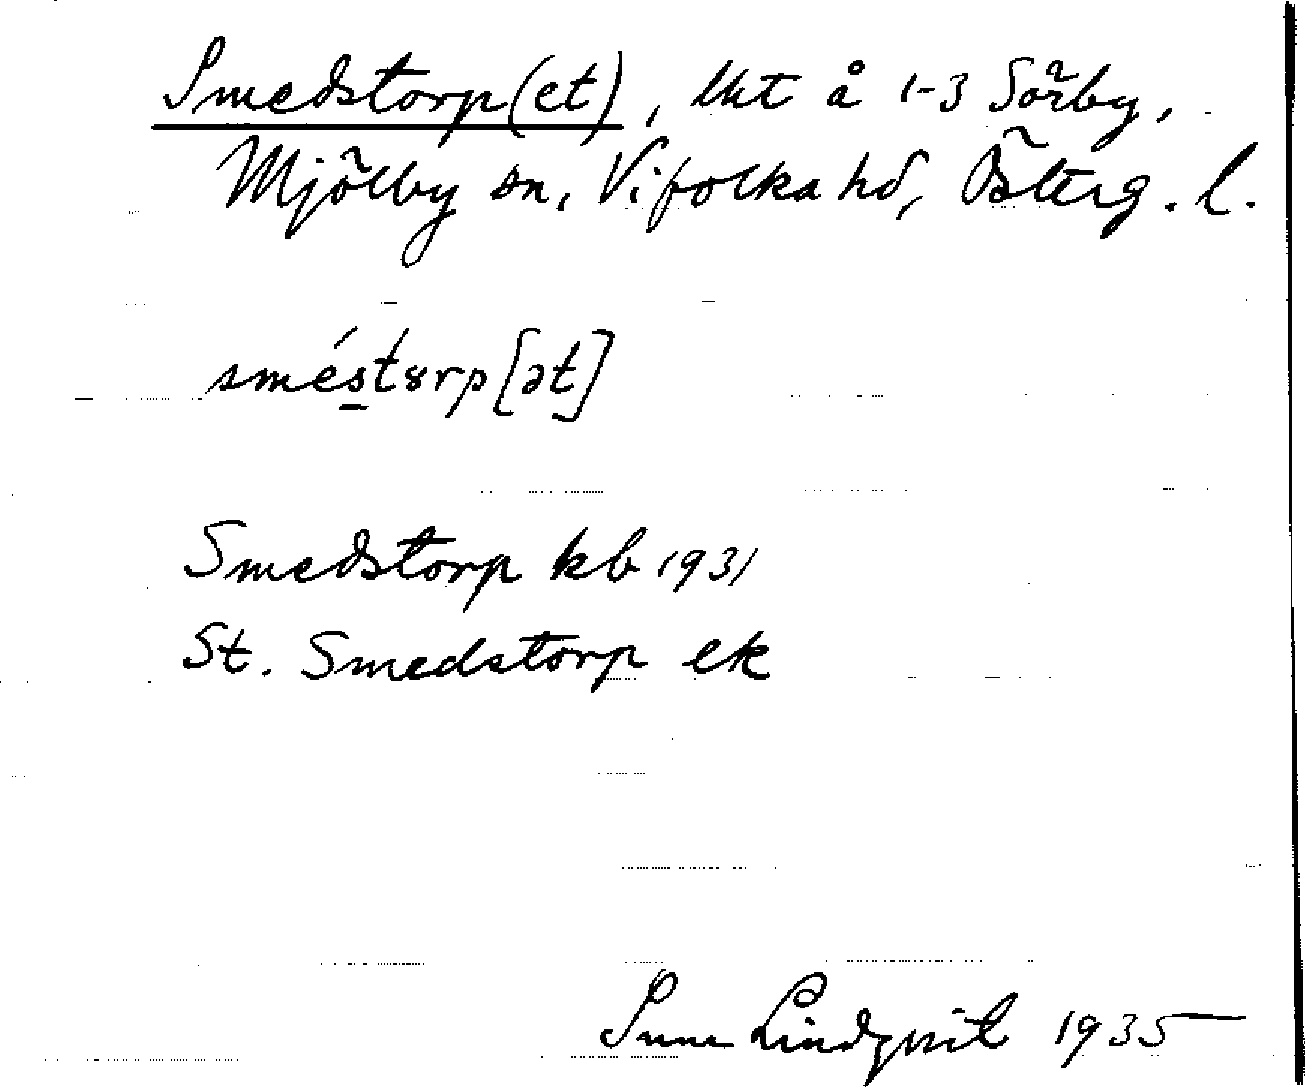 Smedstorp(et), lht å 1-3 Sörby,
Mjölby sn, Vifolka hd, Österg. l.
sméstɤrp[ət]
Smedstorp kb 1931
St. Smedstorp ek
Sune Lindqvist 1935